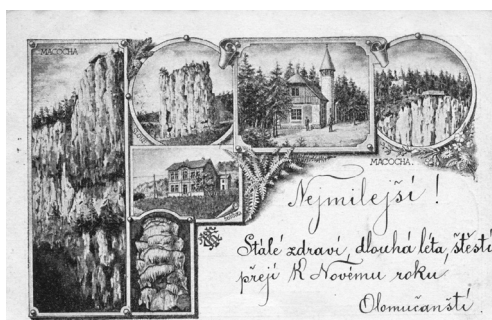 MACOCHA
MACOCHA.
Nejmilejší!
Stálé zdraví, dlouhá léta, štěstí
přejí K Novému roku
Olomučanští.